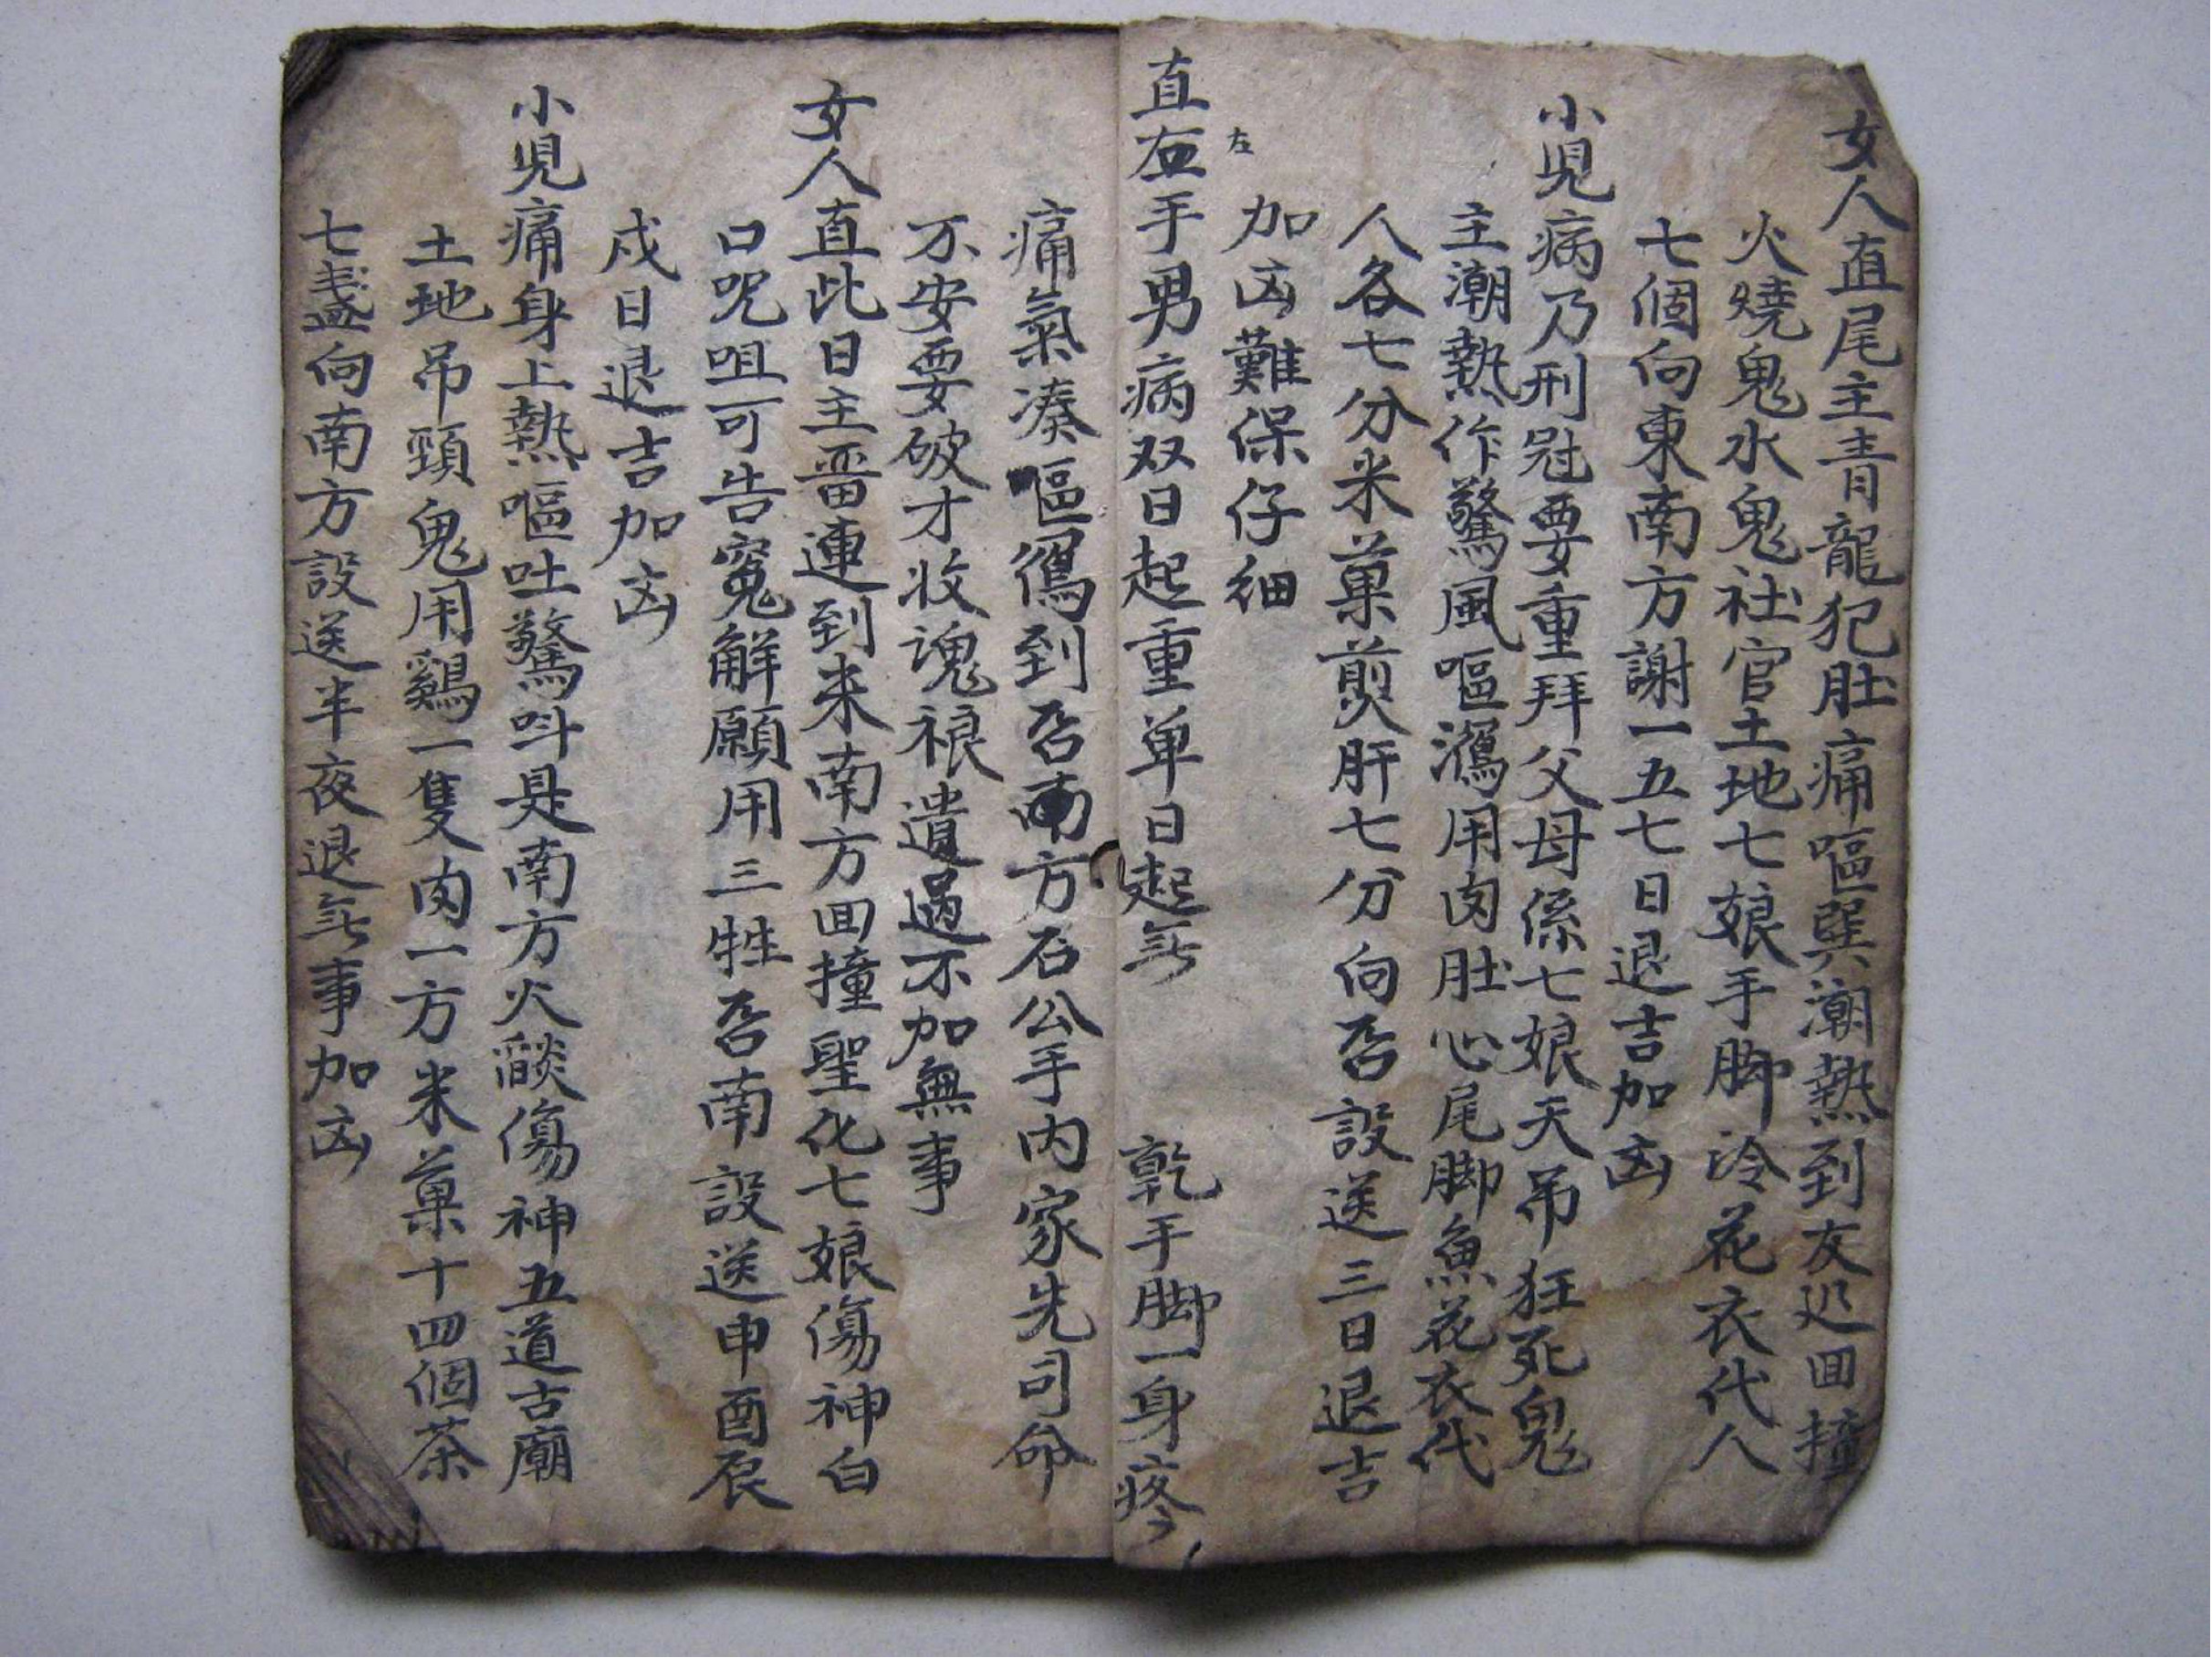 女人直尾主青龍犯肚痛嘔巽潮熱到友迟回撞
火燒鬼水鬼社官土地七娘手脚冷花衣代人
七個向東南方謝一五七日退吉加凶
小児病乃刑尅要重拜父母係七娘天吊狂死鬼
主潮熱作驚風嘔瀉用肉肚心尾脚魚花衣代
人各七分米菓煎肝七分向西設送三日退吉
加凶難保仔細
左
直右手男病双日起重单日起無 乾手脚一身疼
痛氣凑嘔瀉到西南方石公手内家先司命
不安要破才收魂裉遺過不加無事
女人直此日主畨連到来南方回撞聖化七娘傷神白
口呪咀可告寃解願用三牲西南設送申酉辰
戍日退吉加凶
小児痛身上熱嘔吐驚呌是南方火燄傷神五道古廟
土地吊頸鬼用鷄一隻肉一方米菓十四個茶
七盞向南方設送半夜退無事加凶